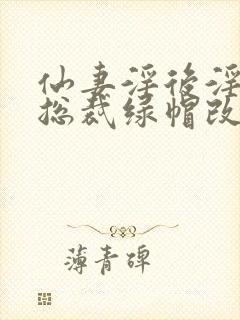 仙妻淫后淫
总裁绿帽改
薄青碑